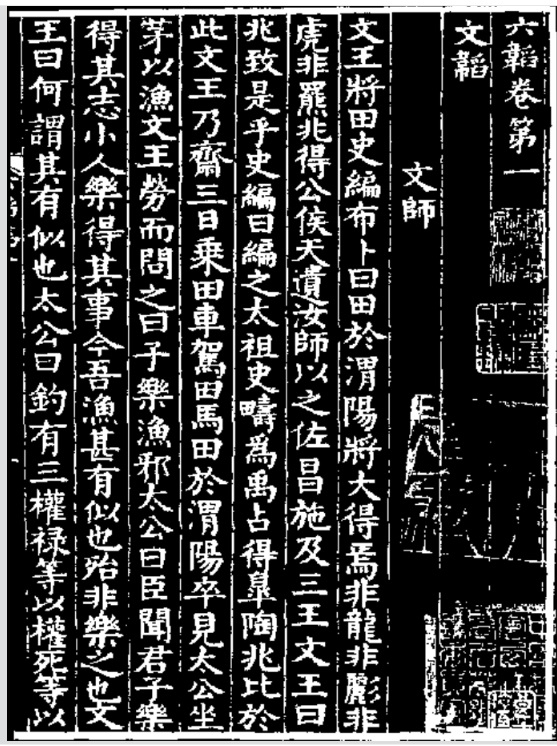 六韜卷第一
文韜
文師
文王將田史編布卜曰田於渭陽將大得焉非龍非彲非
虎非羆兆得公侯天遺汝師以之佐昌施及三王文王曰
兆致是乎史編曰編之太祖史疇爲禹占得皐陶兆比於
此文王乃齋三日乘田車駕田馬田於渭陽卒見太公坐
茅以漁文王勞而問之曰子樂漁邪太公曰臣聞君子樂
得其志小人樂得其事今吾漁甚有似也殆非樂之也文
王曰何謂其有似也太公曰釣有三權祿等以權死等以